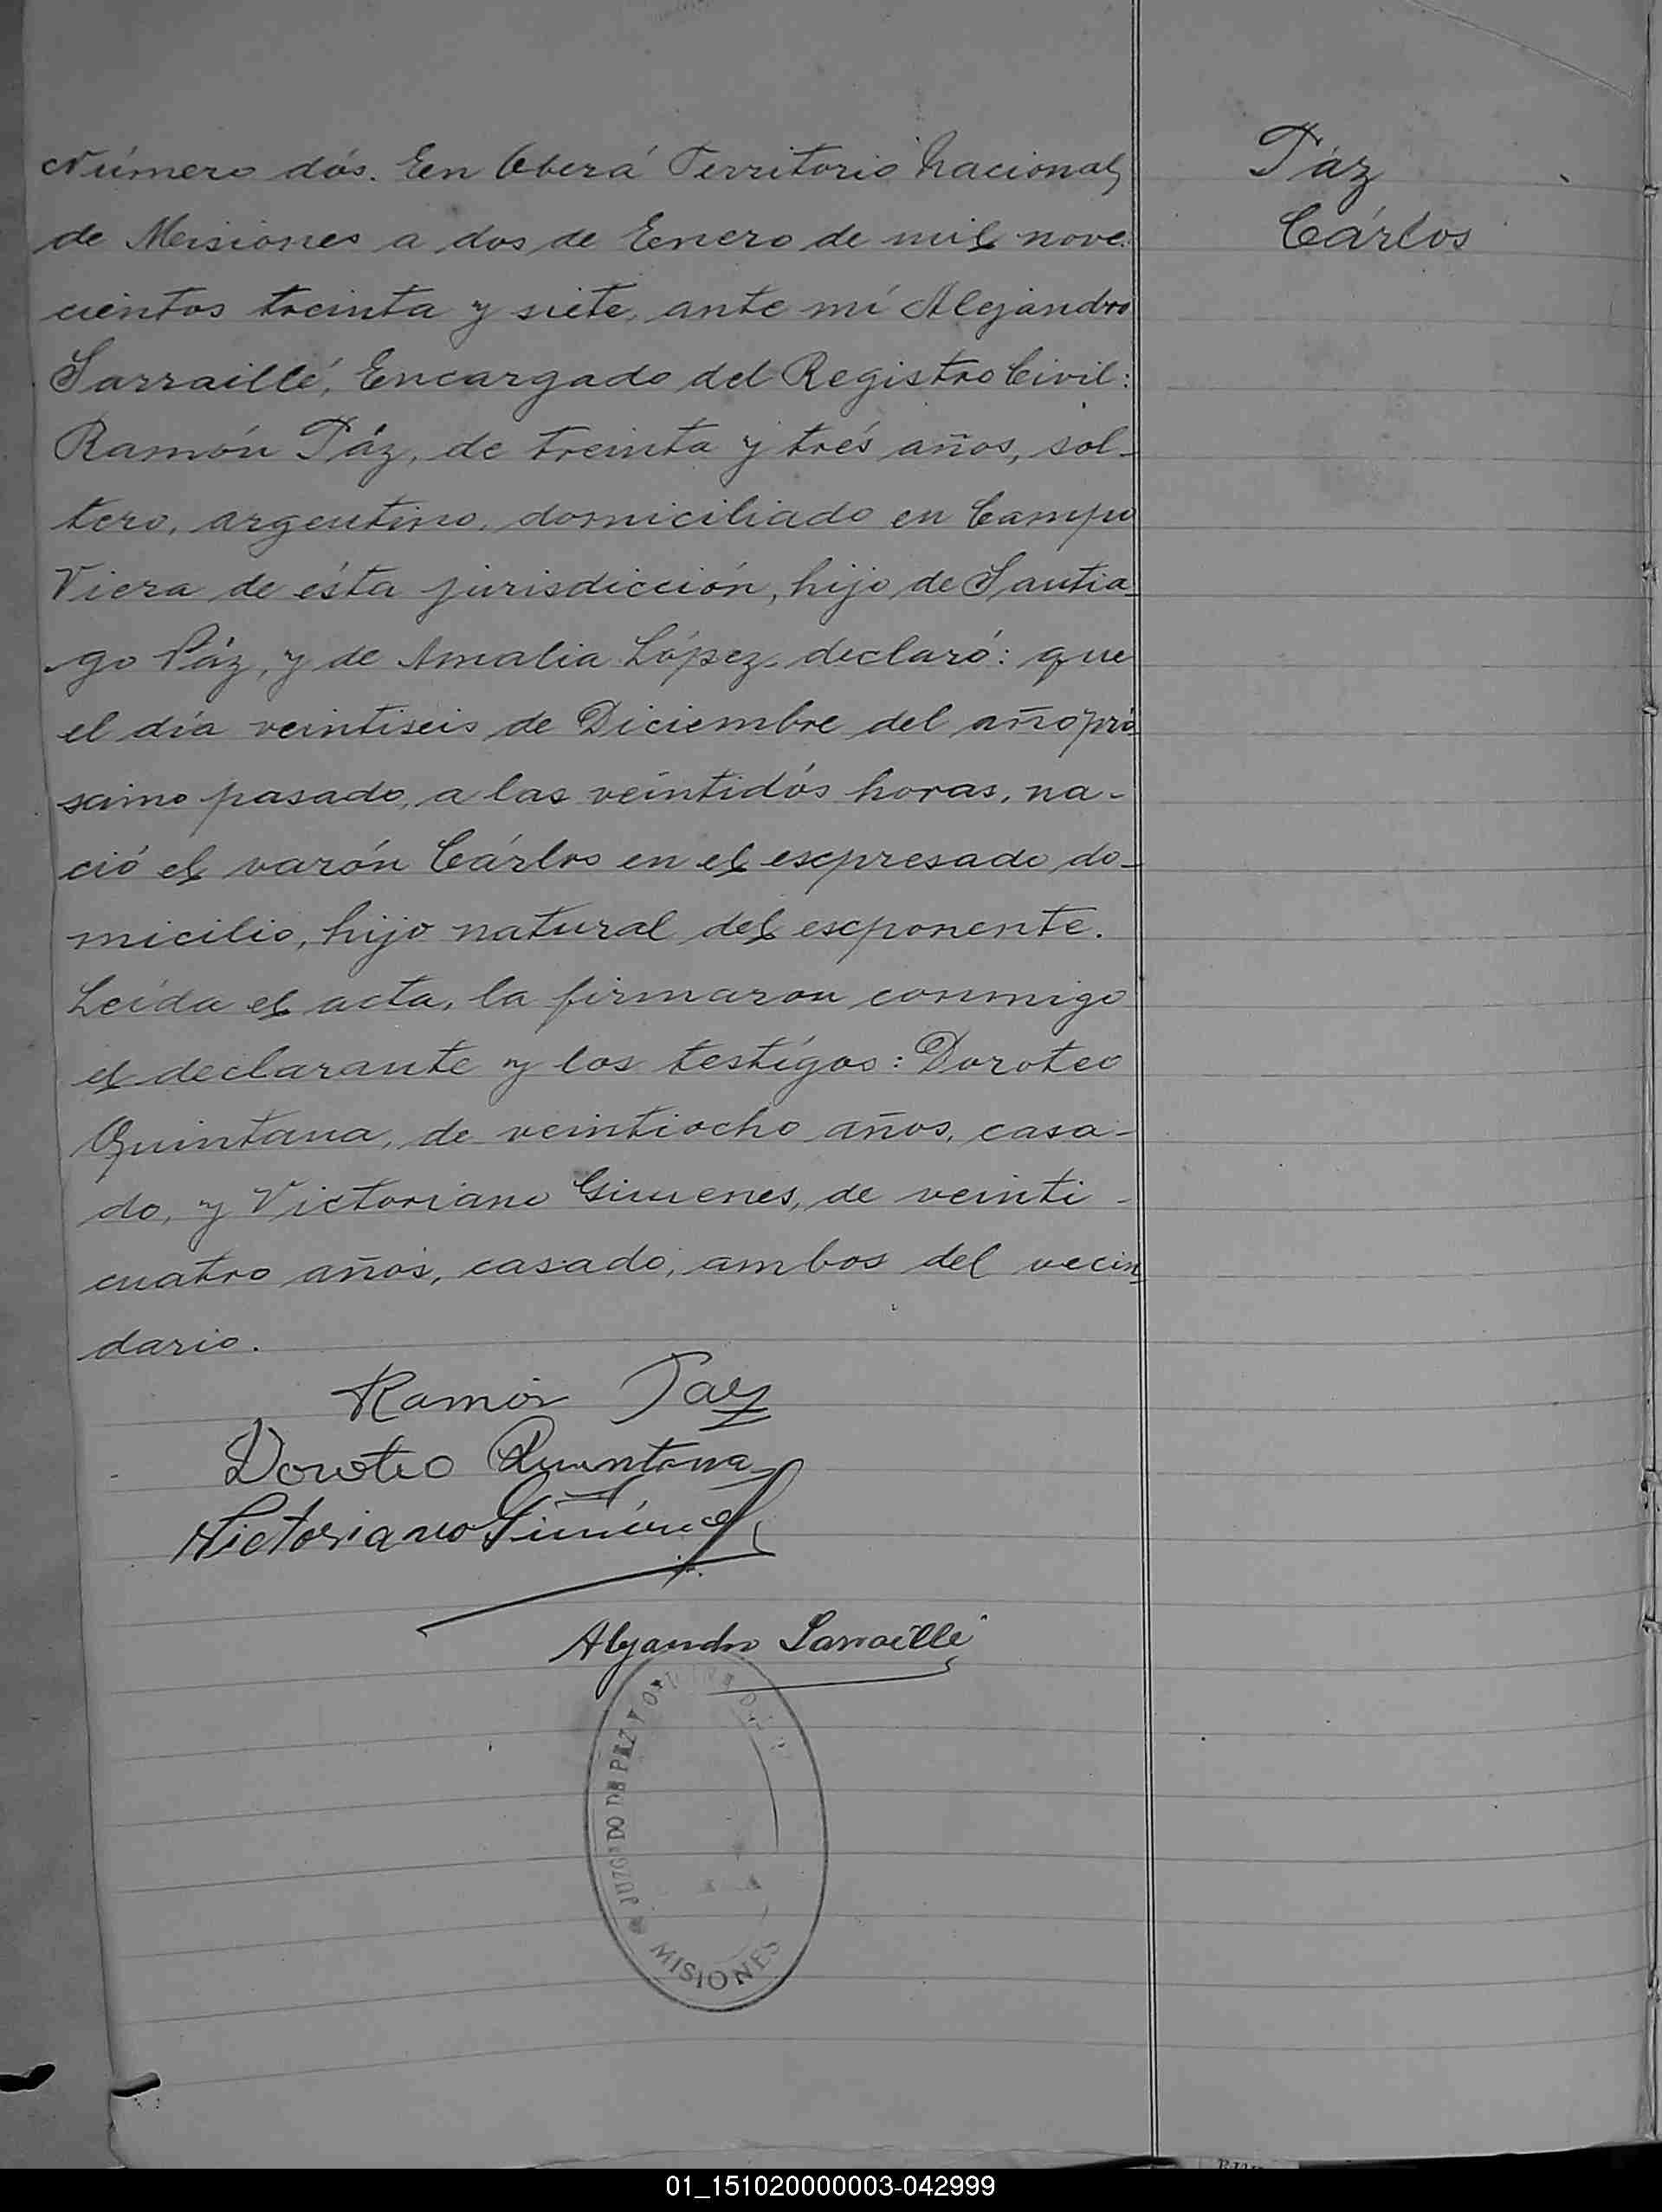 Número dós. En Oberá Territorio Nacional
de Misiones a dos de Enero de mil nove-
cientos treinta y siete, ante mí Alejandro
Sarraillé, Encargado del Registro Civil:
Ramón Páz, de treinta y trés años, sol-
tero, argentino, domiciliado en Campo
Viera de ésta jurisdicción, hijo de Santia
go Páz, y de Amalia López declaró: que
el día veintiseis de Diciembre del año pró
ximo pasado, a las veintidós horas, na-
ció el varón Cárlos en el expresado do-
micilio, hijo natural del exponente.
Leída el acta, la firmaron conmigo
el declarante y los testigos: Doroteo
Quintana, de veintiocho años, casa-
do, y Victoriano Gimenes, de veinti-
cuatro años, casado, ambos del vecin
dario.
Páz
Cárlos
Ramón Paz
Doroteo Quintana
Victoriano Giménez
Alejandro Sarraillé
JUZGADO DE PAZ Y
MISIONES
01_151020000003-042999